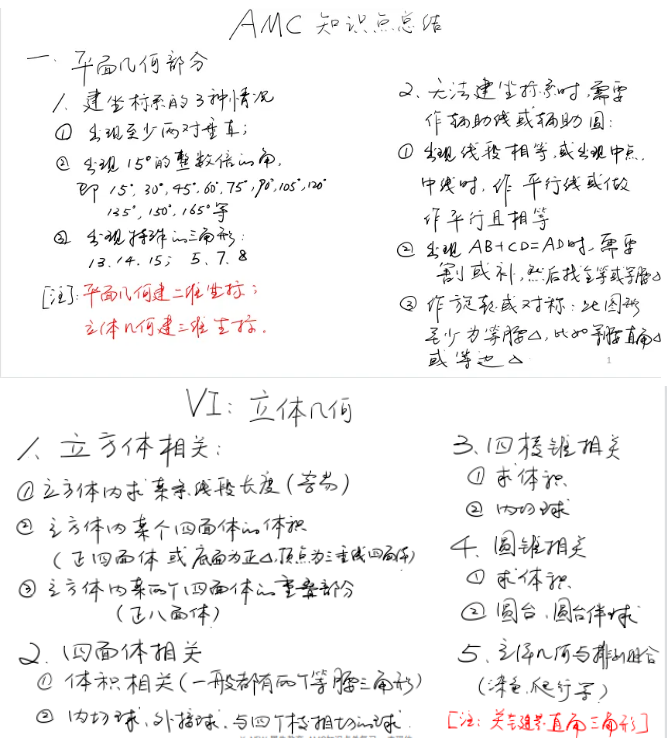 AMC 知识点总结
一. 平面几何部分
1. 建坐标系的3种情况
① 出现至少两对垂直;
② 出现15°的整数倍的角,
即 15°, 30°, 45°, 60°, 75°, 90°, 105°, 120°
135°, 150°, 165°等
③ 出现特殊的三角形:
13. 14. 15; 5. 7. 8
[注]: 平面几何建二维坐标;
立体几何建三维坐标.
2. 无法建坐标系时, 需要
作辅助线或辅助圆:
① 出现线段相等, 或出现中点,
中线时, 作平行线或做
作平行且相等
② 出现 AB+CD=AD时, 需要
割或补, 然后找全等或等腰△
③ 作旋转或对称: 此图形
至少为等腰△, 比如等腰直角△
或等边△
1
VI: 立体几何
1. 立方体相关:
① 立方体内求某条线段长度(容易)
② 立方体内某个四面体的体积
(正四面体 或 底面为正△, 顶点为三垂线四面体)
③ 立方体内某两个四面体的重叠部分
(正八面体)
2. 四面体相关
① 体积相关(一般都有两个等腰三角形)
② 内切球, 外接球, 与四个棱相切的球.
3. 四棱锥相关
① 求体积
② 内切球
4. 圆锥相关
① 求体积
② 圆台, 圆台伴球
5. 立体几何与排列组合
(染色, 爬行等)
[注: 关键找直角三角形]